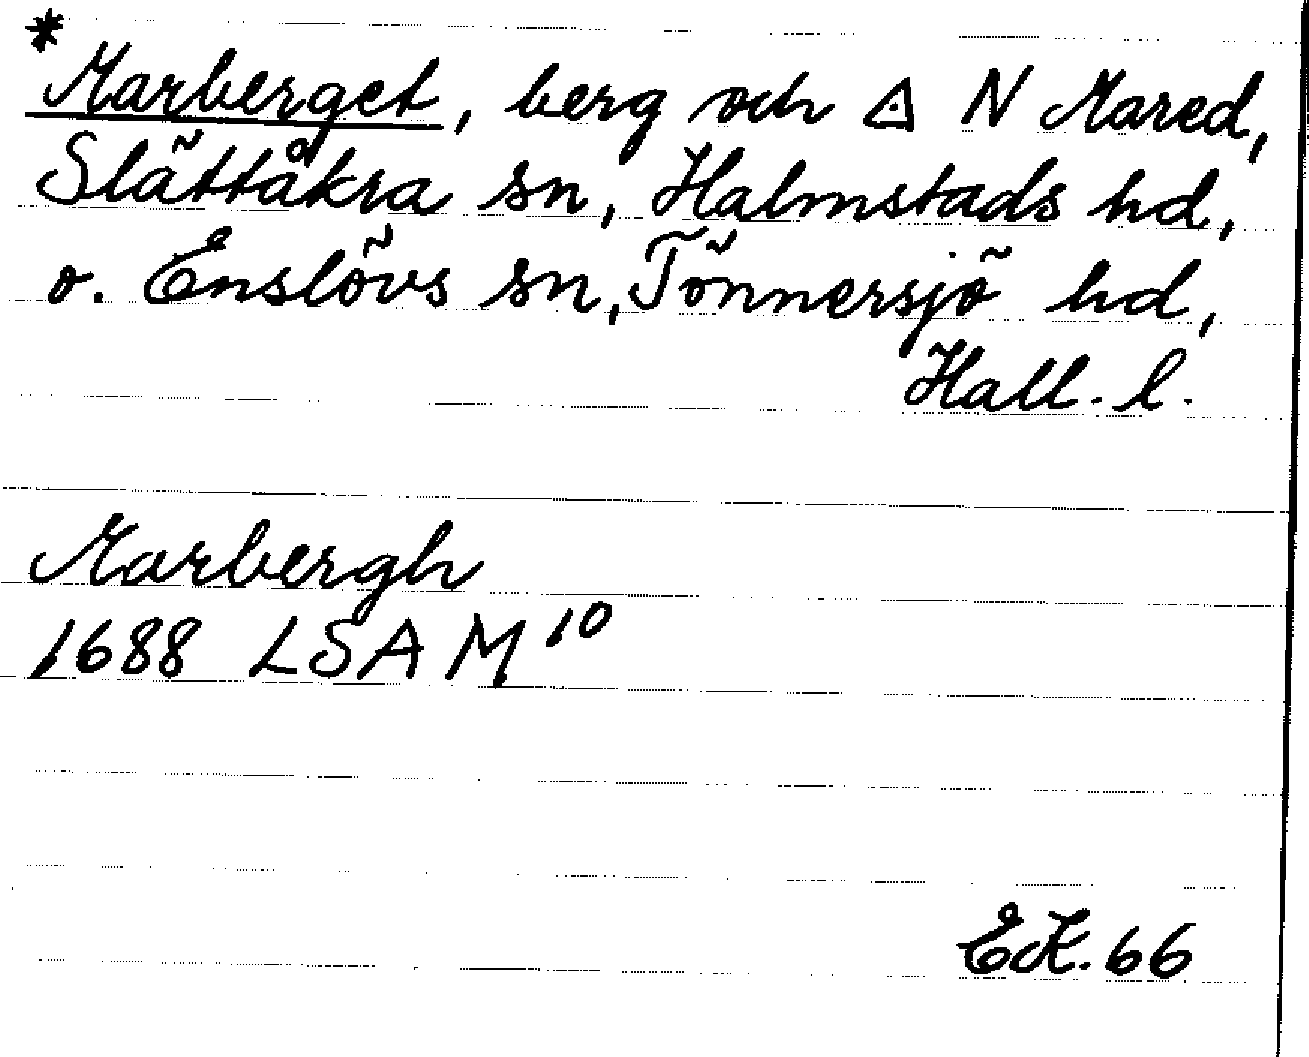 *
Marberget, berg och △ N Mared,
Slättåkra sn, Halmstads hd,
o. Enslövs sn, Tönnersjö hd,
Hall. l.
Marbergh
1688 LSA M 10
EK. 66